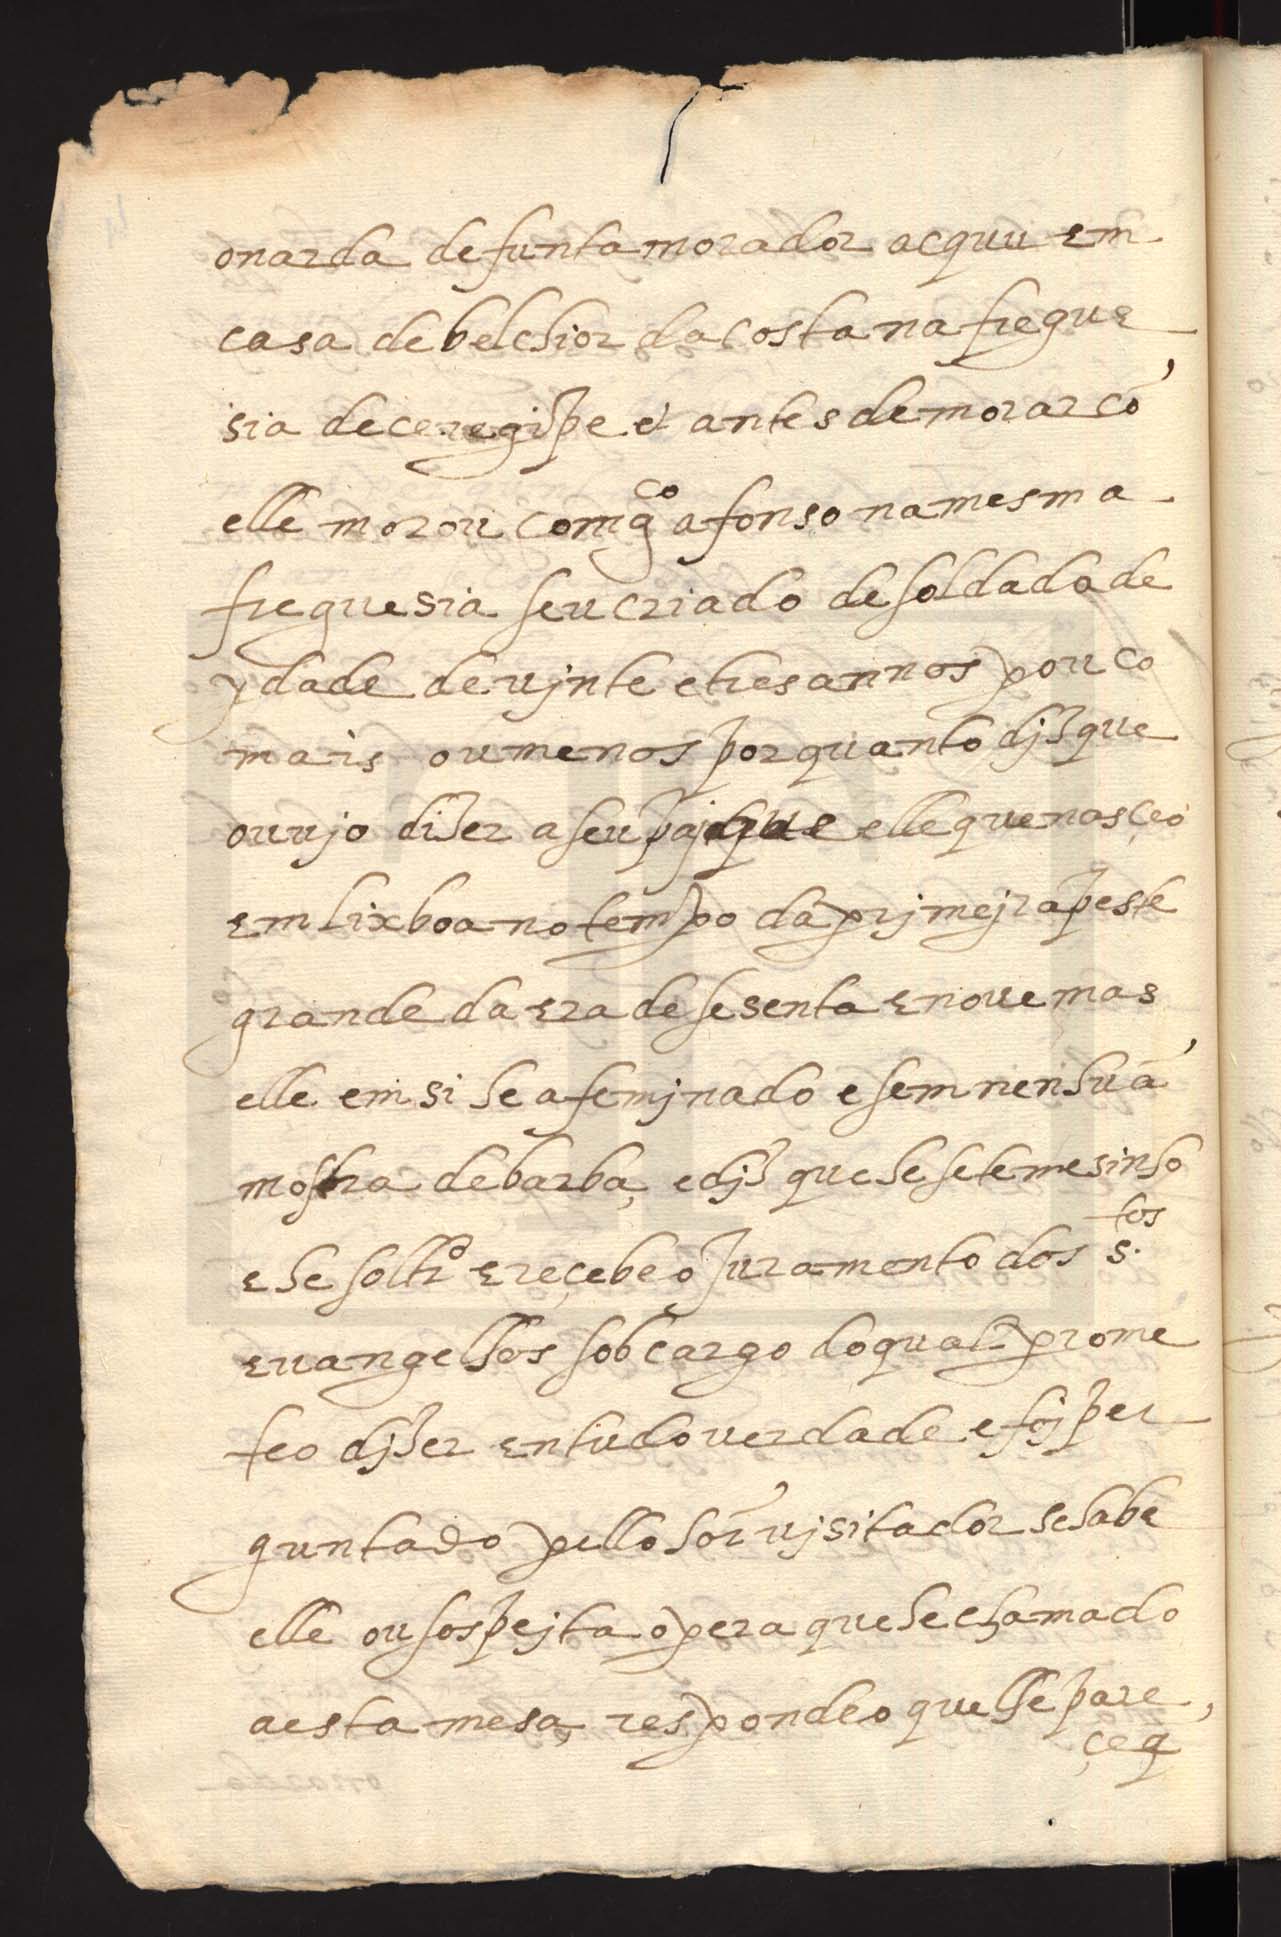 onarda defunta morador acquu em
casa de belchior da costa na fregue
sia de ceregipe e antes de morar cõ
elle morou com g.co afonso na mesma
freguesia seu criado de soldada de
ydade de vjnte e tres annos pouco
mais ou menos por quanto djz que
ouujo dizer a seu paj que elle que nasçeo
em Lixboa no tempo da primejra peste
grande da era de sesenta e noue mas
elle em si he afemjnado e sem nenhuã
mostra de barba, e djz que he setemesinho
e he soltr.o e reçebeo juramento dos s.tos
euangelhos sob cargo do qual prome
teo djzer en tudo verdade e foj per
guntado pello sõr vjsitador se sabe
elle ou sospejta o pera que he chamado
a esta mesa, respondeo que lhe pare,
çe q